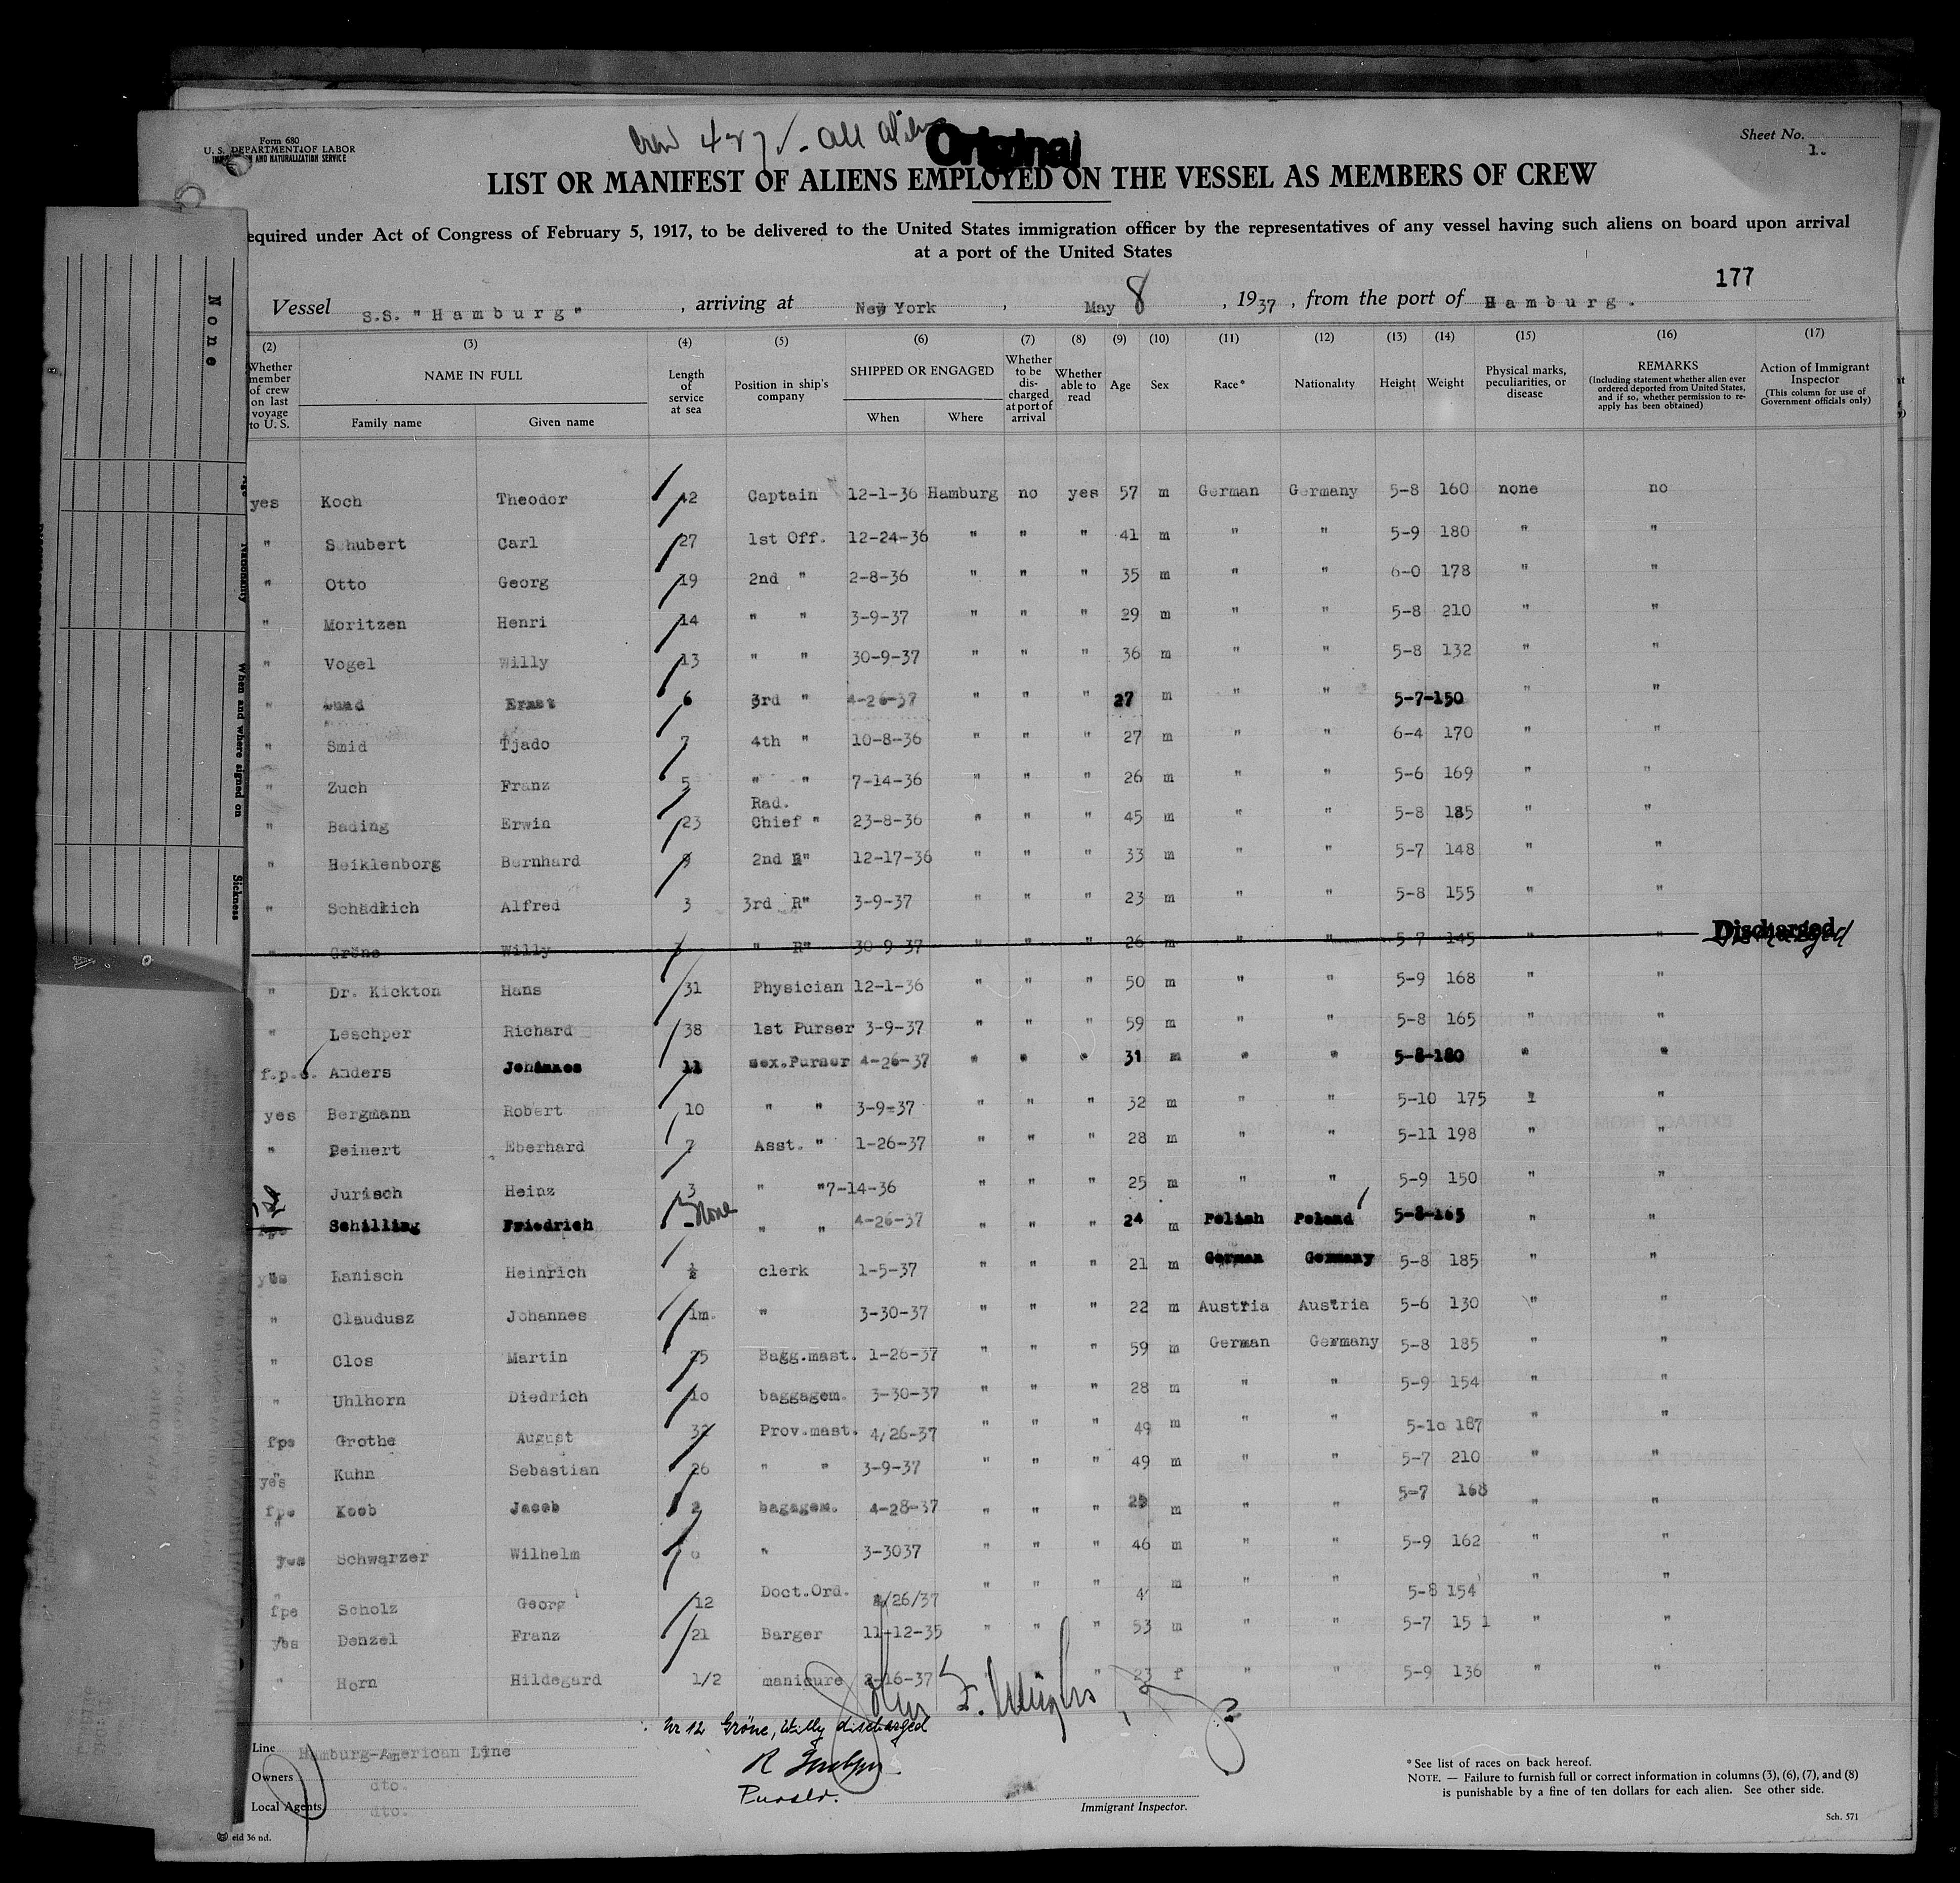 Form 680
U. S. DEPARTMENT OF LABOR
AND NATURALIZATION SERVICE
Crew 427 - All Alien
Original
Sheet No. 1.
LIST OR MANIFEST OF ALIENS EMPLOYED ON THE VESSEL AS MEMBERS OF CREW
equired under Act of Congress of February 5, 1917, to be delivered to the United States immigration officer by the representatives of any vessel having such aliens on board upon arrival
at a port of the United States
177
Vessel S.S. "Hamburg" , arriving at New York , May 8 , 1937 , from the port of Hamburg.
None
Nationality
When and where signed on
Sickness
(2) (3) (4) (5) (6) (7) (8) (9) (10) (11) (12) (13) (14) (15) (16) (17)
Whether member of crew on last voyage to U. S. NAME IN FULL Family name Given name Length of service at sea Position in ship's company SHIPPED OR ENGAGED When Where Whether to be discharged at port of arrival Whether able to read Age Sex Race* Nationality Height Weight Physical marks, peculiarities, or disease REMARKS (Including statement whether alien ever ordered deported from United States, and if so, whether permission to re-apply has been obtained) Action of Immigrant Inspector (This column for use of Government officials only)
yes Koch Theodor 42 Captain 12-1-36 Hamburg no yes 57 m German Germany 5-8 160 none no
" Schubert Carl 27 1st Off. 12-24-36 " " " 41 m " " 5-9 180 " "
" Otto Georg 19 2nd " 2-8-36 " " " 35 m " " 6-0 178 " "
" Moritzen Henri 14 " " 3-9-37 " " " 29 m " " 5-8 210 " "
" Vogel Willy 13 " " 30-9-37 " " " 36 m " " 5-8 132 " "
" Ernst 6 3rd " 4-26-37 " " " 27 m " " 5-7-150 " "
" Smid Tjado 7 4th " 10-8-36 " " " 27 m " " 6-4 170 " "
" Zuch Franz 5 " " 7-14-36 " " " 26 m " " 5-6 169 " "
" Bading Erwin 23 Rad. Chief " 23-8-36 " " " 45 m " " 5-8 185 " "
" Heiklenborg Bernhard 9 2nd R" 12-17-36 " " " 33 m " " 5-7 148 " "
" Schädkich Alfred 3 3rd R" 3-9-37 " " " 23 m " " 5-8 155 " "
" Gröne Willy " R" 30-9-37 " " " 26 m " " 5-7 145 " " Discharged
" Dr. Kickton Hans 31 Physician 12-1-36 " " " 50 m " " 5-9 168 " "
" Leschper Richard 38 1st Purser 3-9-37 " " " 59 m " " 5-8 165 " "
f.p.e. Anders Johannes 11 sex.Purser 4-26-37 " " " 31 m " " 5-8-180 " "
yes Bergmann Robert 10 " " 3-9-37 " " " 32 m " " 5-10 175 " "
" Beinert Eberhard 7 Asst. " 1-26-37 " " " 28 m " " 5-11 198 " "
Jurisch Heinz 3 " "7-14-36 " " " 25 m " " 5-9 150 " "
Schilling Friedrich - None " " 4-26-37 " " " 24 m Polish Poland 5-8-165 " "
yes Ranisch Heinrich ½ clerk 1-5-37 " " " 21 m German Germany 5-8 185 " "
" Claudusz Johannes 1m. " 3-30-37 " " " 22 m Austria Austria 5-6 130 " "
" Clos Martin 25 Bagg.mast. 1-26-37 " " " 59 m German Germany 5-8 185 " "
" Uhlhorn Diedrich 10 baggagem. 3-30-37 " " " 28 m " " 5-9 154 " "
fpe Grothe August 32 Prov.mast. 4/26-37 " " " 49 m " " 5-10 187 " "
yes Kuhn Sebastian 26 " " 3-9-37 " " " 49 m " " 5-7 210 " "
fpe Koob Jacob 2 bagagem. 4-28-37 " " " 25 m " " 5-7 168 " "
yes Schwarzer Wilhelm " 3-3037 " " " 46 m " " 5-9 162 " "
fpe Scholz Georg 12 Doct.Ord. 4/26/37 " " " m " " 5-8 154 " "
yes Denzel Franz 21 Barger 11-12-35 " " " 53 m " " 5-7 151 " "
" Horn Hildegard 1/2 manicure 2-16-37 " 23 f " " 5-9 136 " "
Nr 12 Gröne, Willy discharged
Purser.
Line Hamburg-American Line
Owners dto.
Local Agents dto.
Immigrant Inspector.
* See list of races on back hereof.
NOTE. — Failure to furnish full or correct information in columns (3), (6), (7), and (8)
is punishable by a fine of ten dollars for each alien. See other side.
Sch. 571
eld 36 nd.